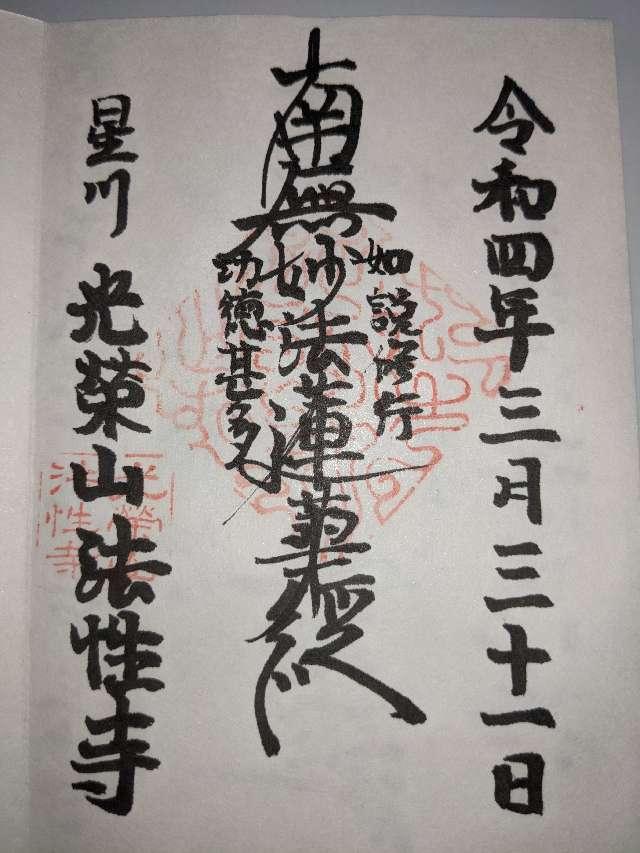 令和四年三月三十一日
如説修行
南無妙法蓮華経
功徳甚多
星川 光榮山法性寺
光榮山
法性寺